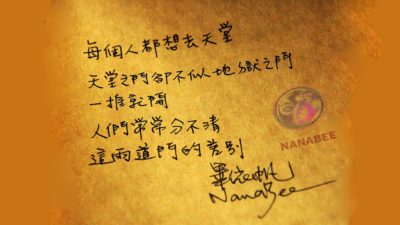 每個人都想去天堂
天堂之門卻不似地獄之門
一推就開
人們常常分不清
這兩道門的差別
NANABEE
NanaBee